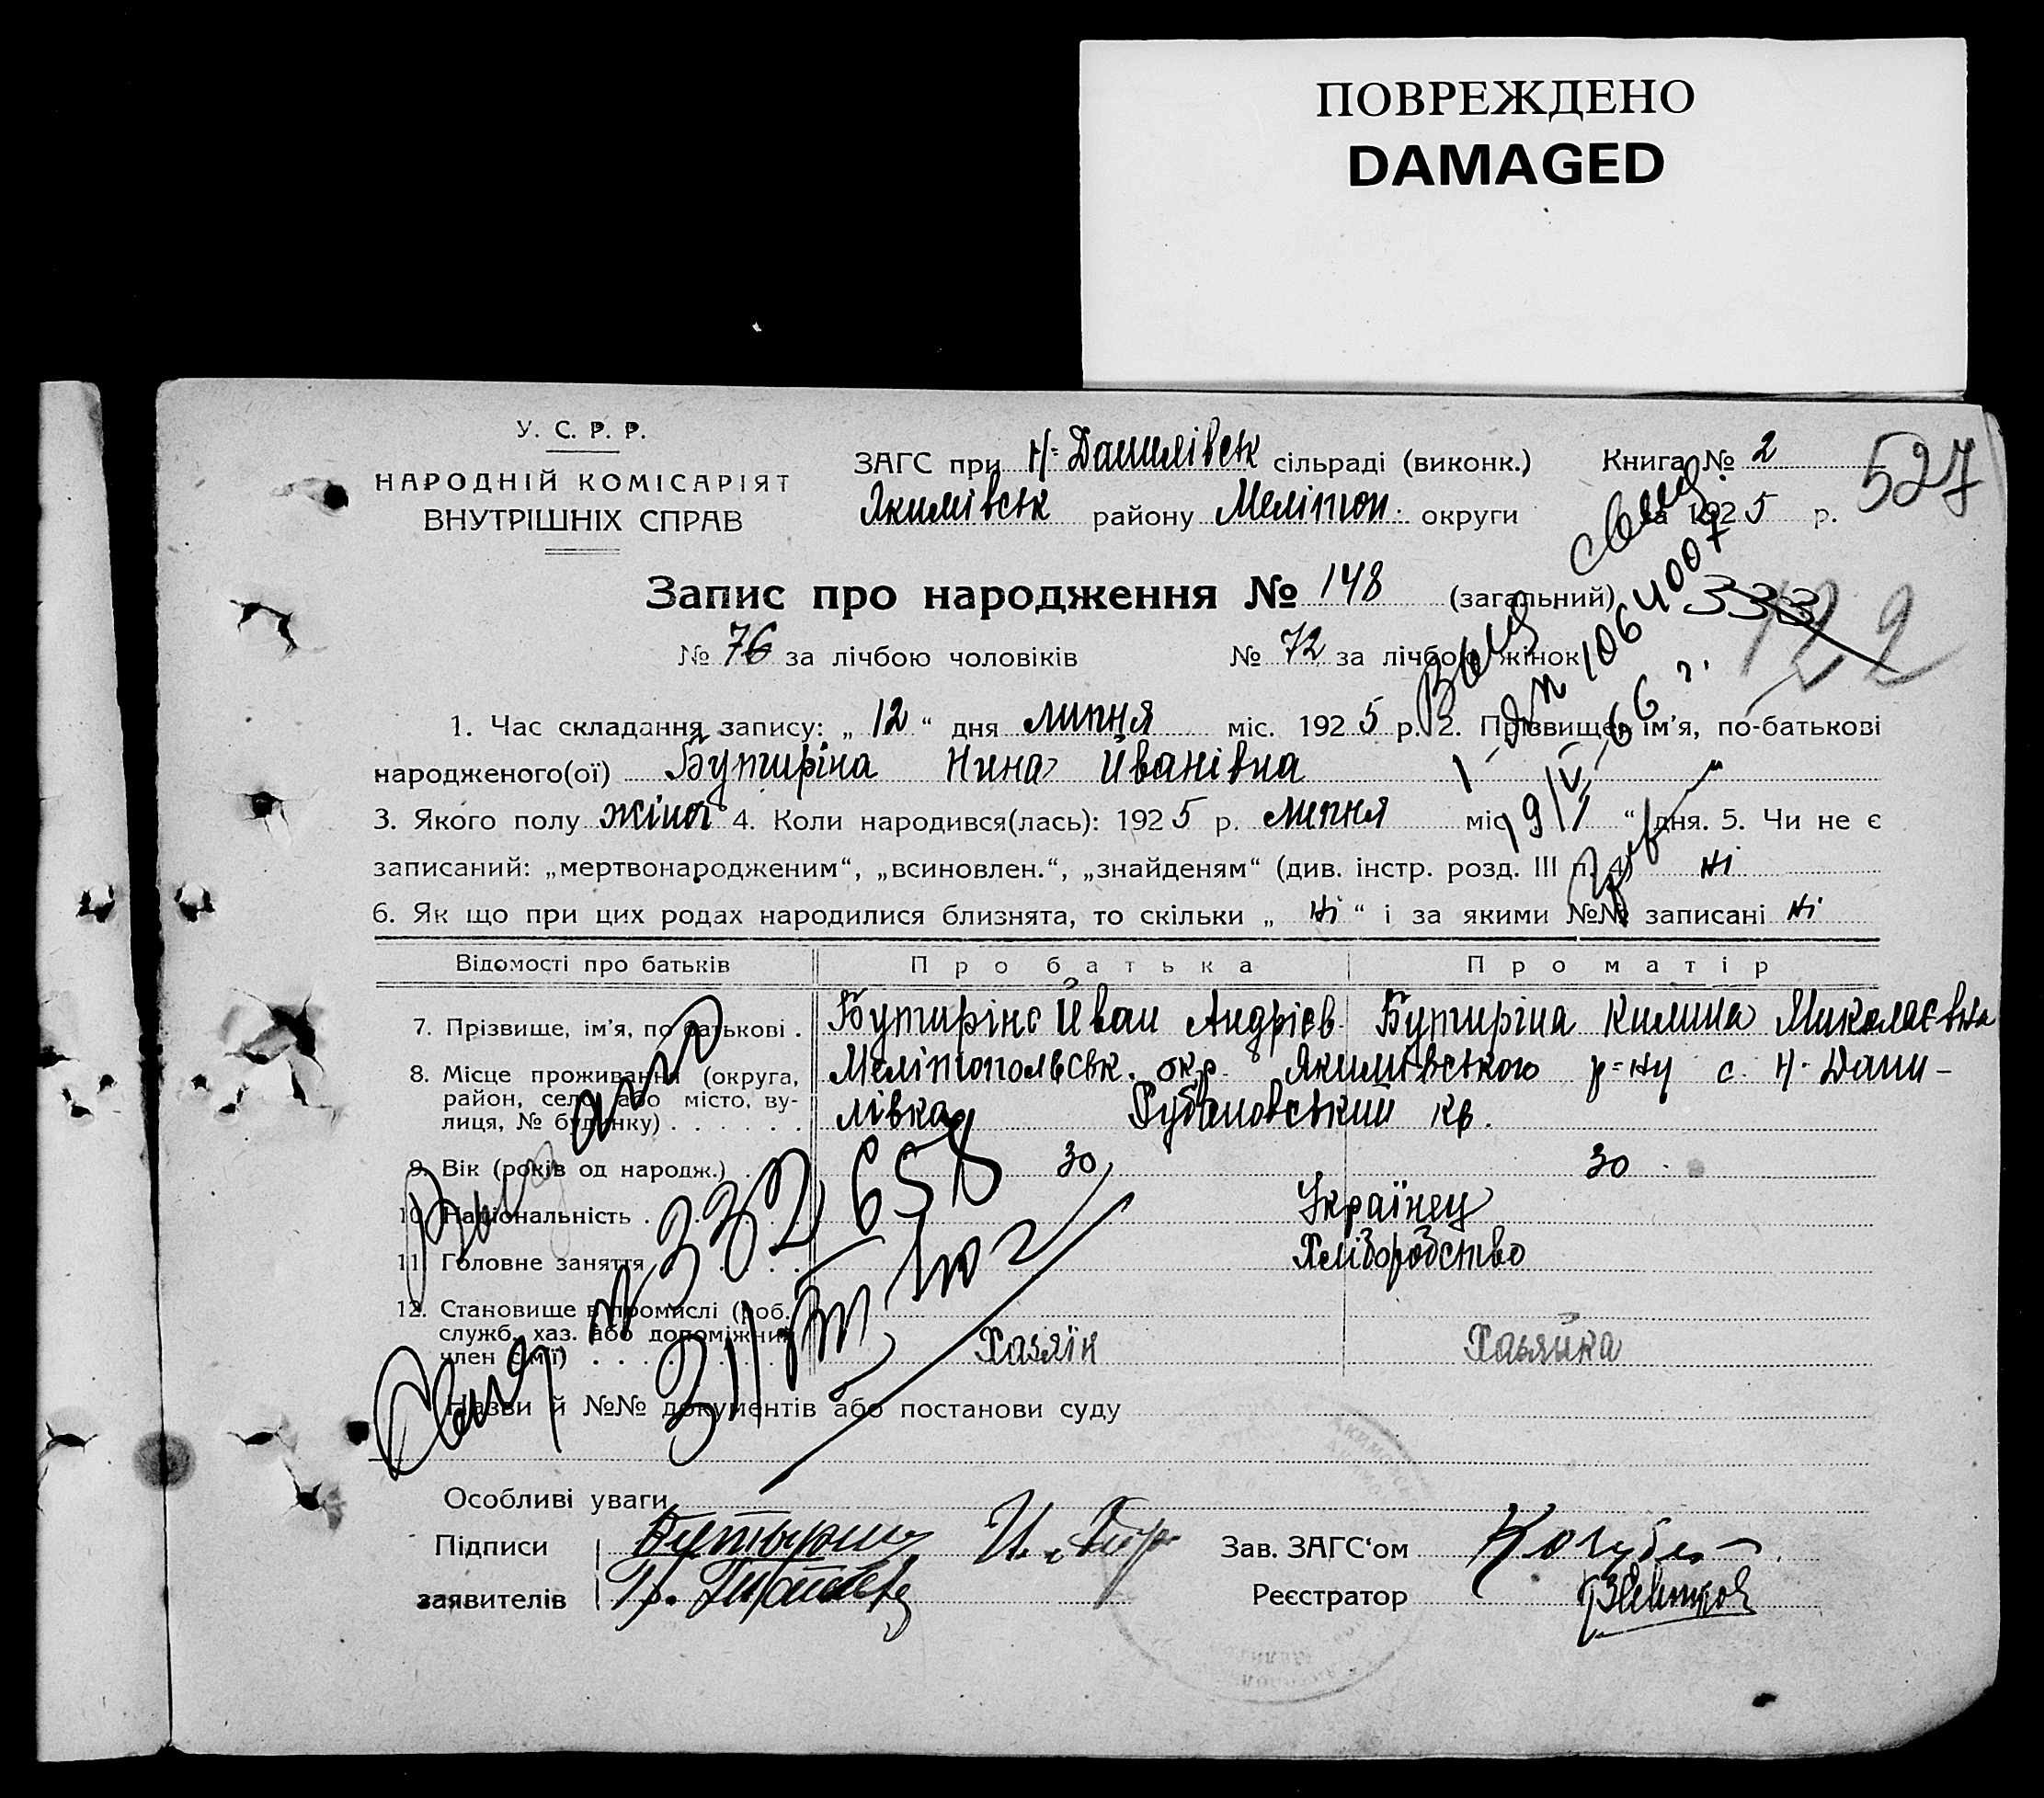 ПОВРЕЖДЕНО
DAMAGED
У. С. Р. Р.
НАРОДНІЙ КОМІСАРІЯТ
ВНУТРІШНІХ СПРАВ
ЗАГС при Н-Данилівськ сільраді (виконк.)
Книга № 2
527
Якимівськ району Мелітоп. округи
за 1925 р.
Запис про народження № 148 (загальний)
333
122
№ 76 за лічбою чоловіків № 72 за лічбою жінок
1. Час складання запису: „ 12 “ дня липня міс. 1925 р. 2. Прізвище, ім’я, по-батькові
народженого(ої) Бутиріна Нина Иванівна
3. Якого полу жіноч 4. Коли народився(лась): 1925 р. липня міс. 1 “ дня. 5. Чи не є
записаний: „мертвонародженим“, „всиновлен.“, „знайденям“ (див. інстр. розд. III п. 4) ні
6. Як що при цих родах народилися близнята, то скільки „ ні “ і за якими №№ записані ні
Відомості про батьків
Про батька
Про матір
7. Прізвище, ім’я, по батькові .
Бутирінс Иван Андрієв
Бутиріна Килина Миколаєвна
8. Місце проживання (округа,
район, село або місто, ву-
лиця, № будинку) . . . . . .
Мелітопольськ. окр. Якимівського р-ну с. Н-Дани-
лівка кв.
9. Вік (років од народж.) .
30
30
10. Національність . . . . . .
Українец
11. Головне заняття . . . . .
Хліборобство
12. Становище в промислі (роб.
служб. хаз. або допоміжний
член сім’ї) . . . . . . . . .
Хазяїн
Хазяйка
Назви й №№ документів або постанови суду
Особливі уваги
Підписи
заявителів
Бутырин И. Анд
Гр.
Зав. ЗАГС‘ом
Реєстратор
Выд свид
1-ЯП № 1064007
19/V-66 г.
Выдано
Свид № 332658